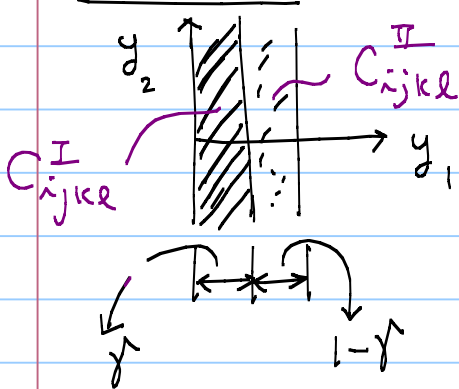 y₂
C^{II}_{ijkl}
y₁
C^{I}_{ijkl}
γ
1-γ